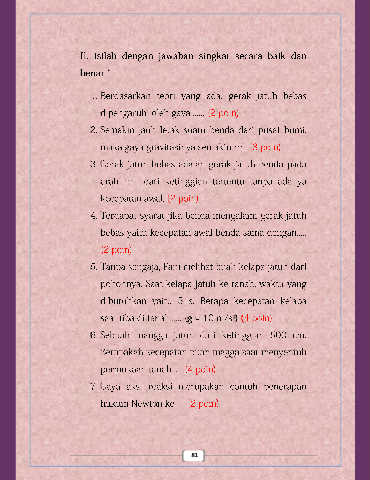 II. Isilah dengan jawaban singkat secara baik dan
benar !
1. Berdasarkan teori yang ada, gerak jatuh bebas
dipengaruhi oleh gaya ...... (2 poin)
2. Semakin jauh letak suatu benda dari pusat bumi,
maka gaya gravitasinya semakin .... (3 poin)
3. Gerak jatuh bebas adalah gerak jatuh benda pada
arah dari ketinggian tertentu tanpa adanya
kecepatan awal. (2 poin)
4. Terdapat syarat jika benda mengalami gerak jatuh
bebas yaitu kecepatan awal benda sama dengan.....
(2 poin)
5. Tanpa sengaja, Fani melihat buah kelapa jatuh dari
pohonnya. Saat kelapa jatuh ke tanah, waktu yang
dibutuhkan yaitu 5 s. Berapa kecepatan kelapa
saat tiba di tanah ...... (g = 10 m/s²) (4 poin)
6. Sebuah mangga jatuh dari ketinggian 500 cm.
Berapakah kecepatan buah mangga saat menyentuh
permukaan tanah ... (4 poin)
7. Gaya aksi reaksi merupakan contoh penerapan
hukum Newton ke (2 poin)
81